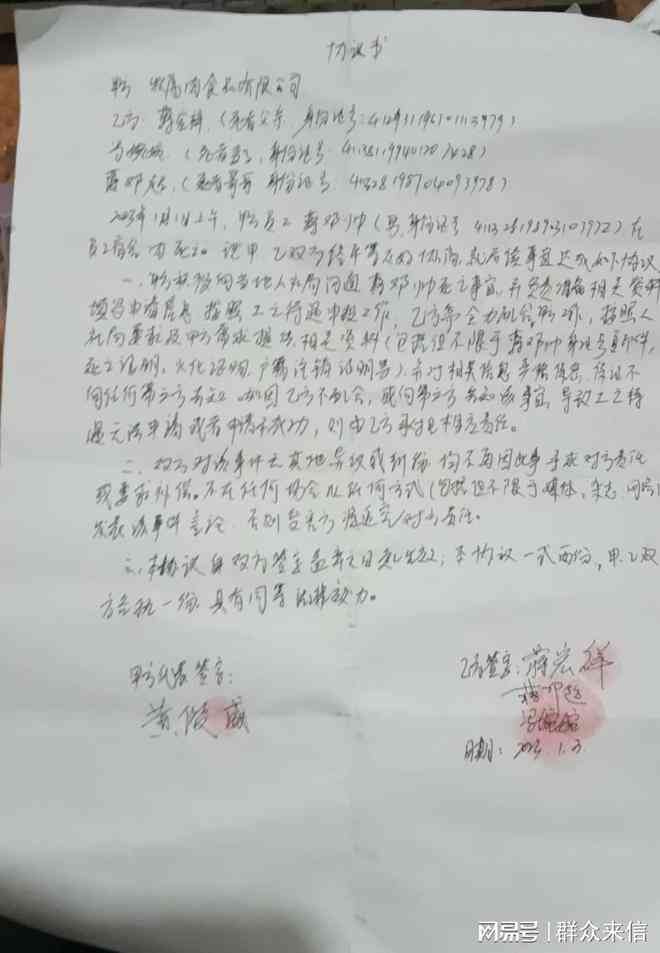 协议书
甲方 牧原肉食品有限公司
乙方: 蒋宏祥, (死者父亲, 身份证号:
(死者妻子, 身份证号:
蒋邓超, (死者哥哥 身份证号
2023年1月1日上午, 甲方员工 蒋邓帅 (男, 身份证号 在
员工宿舍内死亡。现甲、乙双方经平等友好协商, 就后续事宜达成如下协议
一、甲方积极向当地人社局沟通 蒋邓帅死亡事宜, 并负责准备相关资料
填写申请信息 按照工亡待遇申报工作, 乙方需全力配合 工作, 按照人
社局要求及甲方需求提供相关资料 (包括但不限于蒋邓帅身份证复印件,
死亡证明, 火化证明, 户籍注销证明等), 并对相关信息 保证不
向任何第三方告知。如因乙方不配合, 或向第三方告知该事宜, 导致工亡待
遇无法申请或者申请不成功, 则由乙方承担相应责任。
二、双方对该事件 其他异议或纠纷, 均不再因此事寻求对方责任
或要求补偿。不在任何场合以任何方式 (包括但不限于媒体, 杂志, 网络
发表该事件言论, 否则 对方责任。
三、本协议自双方签字盖章之日起生效; 本协议一式两份, 甲、乙双
方各执一份, 具有同等法律效力。
甲方代表签字:
黄俊威
乙方签字: 蒋宏祥
蒋邓超
日期: 2023. 1.
网易号 | 群众来信